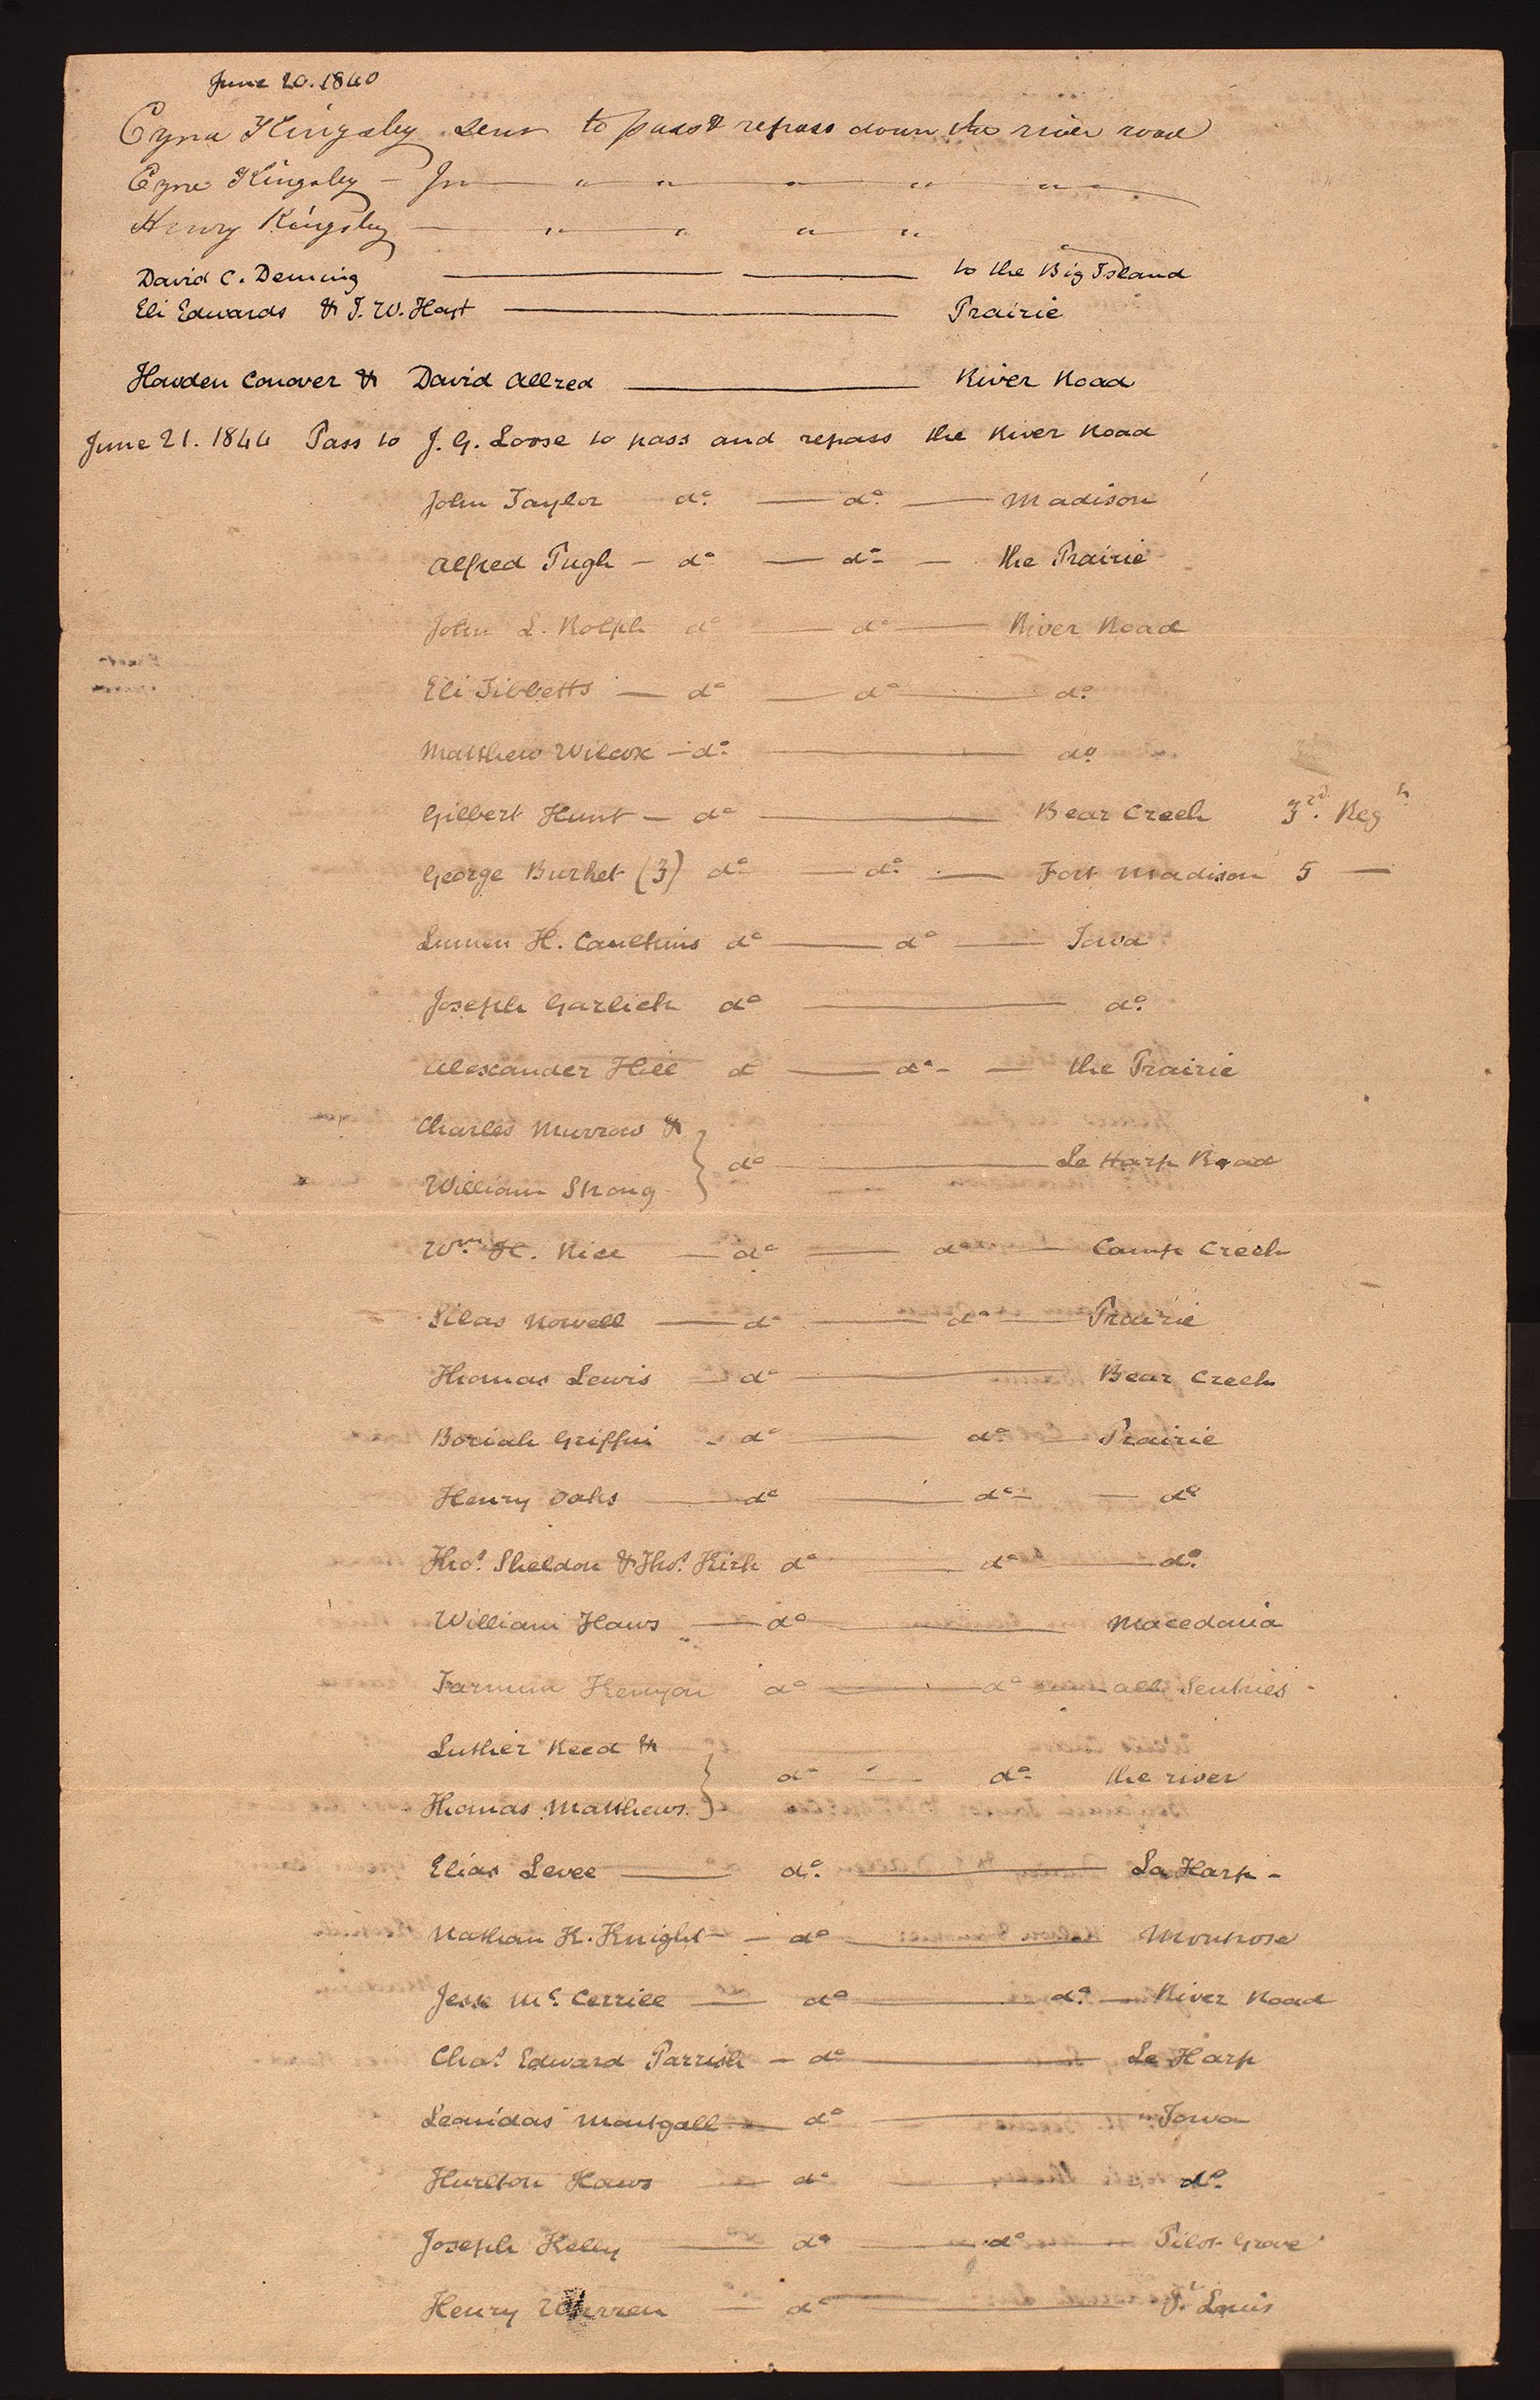 June 20. 1840
Ezra Kingsley Senr to pass & repass down the river road
Ezra Kingsley - Jr — " " " " "
Henry Kingsley — " " " "
David C. Deming — — to the Big Island
Eli Edwards & J. W. Hoyt — Prairie
Howden Conover & David Allred — River Road
June 21. 1844 Pass to J. G. Loose to pass and repass the River Road
John Taylor do. — do. — Madison
Alfred Pugh — do — do — the Prairie
John L. Rolph do — do — River Road
Eli Tibbetts — do — do — do.
Matthew Wilcox — do. — do
Gilbert Hunt — do — Bear Creek 3rd. Regt
George Burket (3) do — do. — Fort Madison 5 —
Lumen H. Caulkins do — do — Iowa
Joseph Garlick do — do.
Alexander Hill d — do - — the Prairie
Charles Murrow &
William Strong } do — Le Harp Road
Wm. H. Rice — do — do — Camp Creek
Silas Nowell — do — do — Prairie
Thomas Lewis — do — Bear Creek
Boriah Griffin - do — do. — Prairie
Henry Oaks — do — do — do
Thos. Sheldon & Thos. Kirk do — do — do.
William Haws — do — Macedonia
Farnum Kenyon do — do — all Sentries -
Luther Reed &
Thomas Matthews. } do — do. the river
Elias Levee — do. — La Harp -
Nathan K. Knight — do — Montrose
Jesse Mc. Cerrill — do — do. — River Road
Chas. Edward Parrish — do — Le Harp
Leonidas Montgall — do — Iowa
Hurlton Haws — do — do.
Joseph Kelly — do — do — Pilot Grove
Henry Warren — do — St Louis